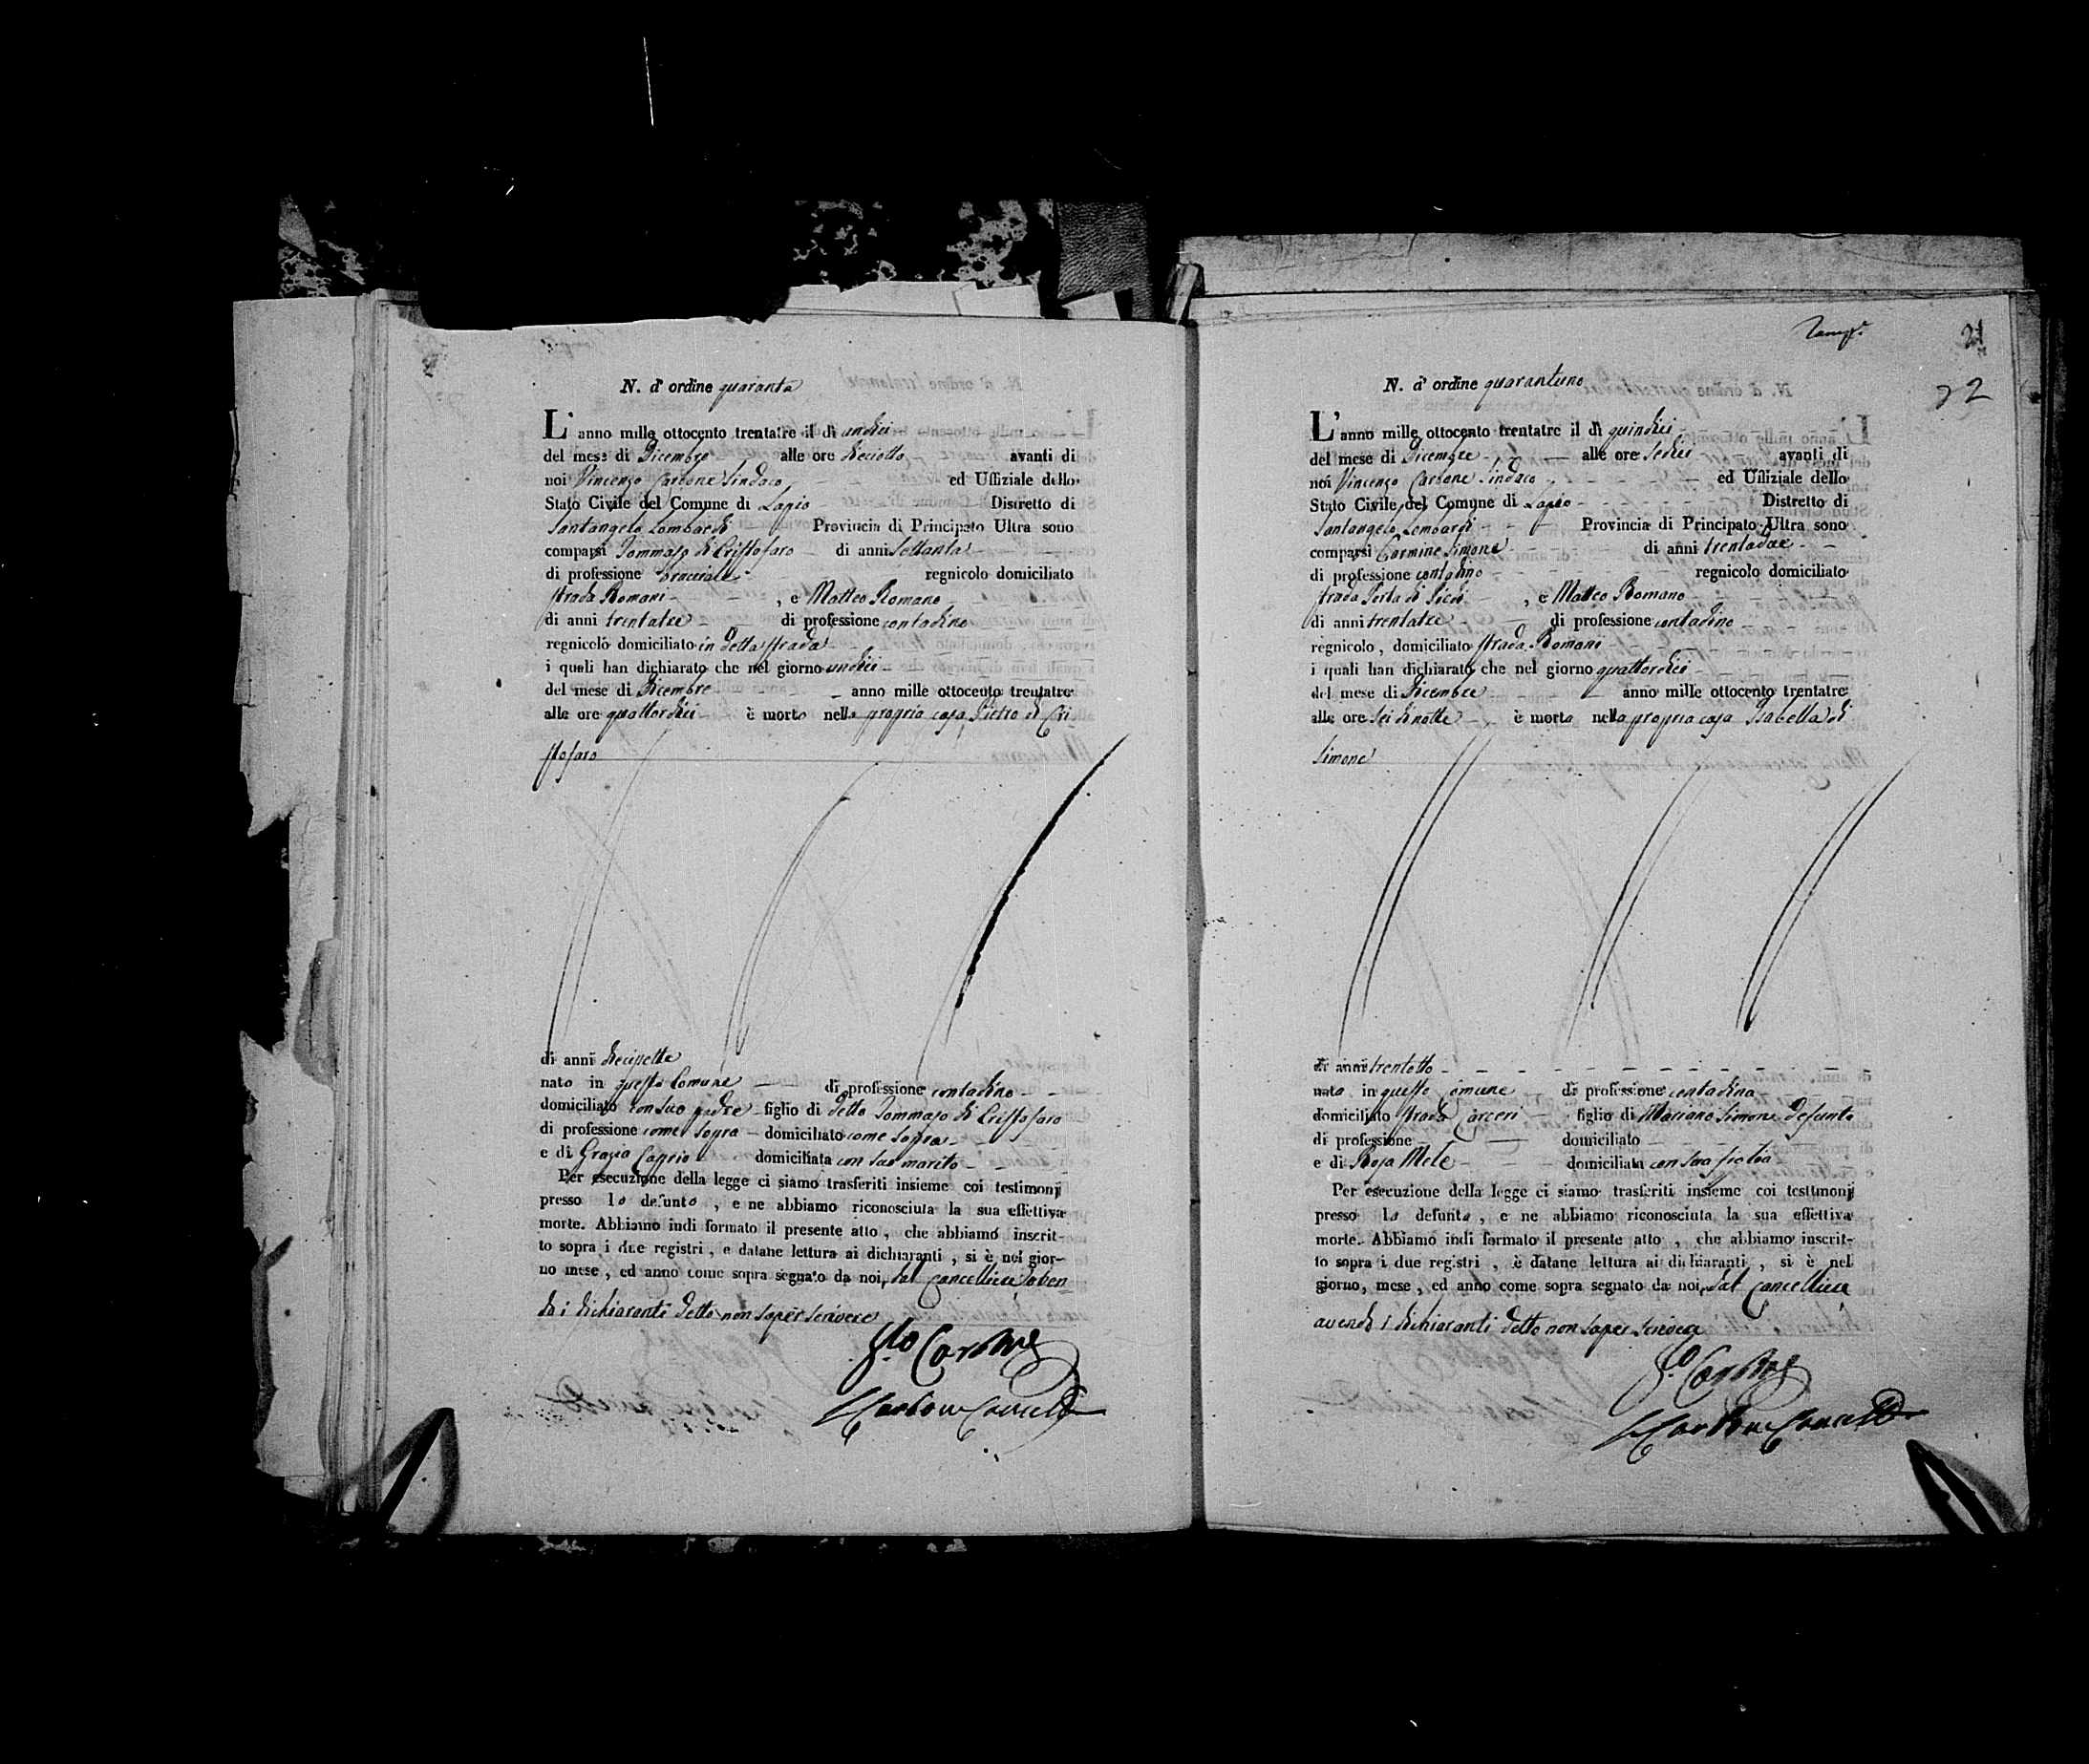 N. d' ordine quaranta
L' anno mille ottocento trentatre il dì undici
del mese di Dicembre alle ore dieciotto avanti di
noi Vincenzo Carbone Sindaco ed Uffiziale dello
Stato Civile del Comune di Lapio Distretto di
Santangelo Lombardi Provincia di Principato Ultra sono
comparsi Tommaso di Cristofaro di anni settanta
di professione bracciale regnicolo domiciliato
strada Romani , e Matteo Romano
di anni trentatre di professione contadino
regnicolo domiciliato in detta strada
i quali han dichiarato che nel giorno undici
del mese di Dicembre anno mille ottocento trentatre
alle ore quattordici è morto nella propria casa Pietro di Cri
stofaro
di anni diecisette
nato in questo Comune di professione contadino
domiciliato con suo padre figlio di detto Tommaso di Cristofaro
di professione come sopra domiciliato come sopra
e di Grazia Caprio domiciliata con suo marito
Per esecuzione della legge ci siamo trasferiti insieme coi testimonj
presso lo defunto , e ne abbiamo riconosciuta la sua effettiva
morte. Abbiamo indi formato il presente atto , che abbiamo inscrit-
to sopra i due registri , e datane lettura ai dichiaranti , si è nel gior-
no mese , ed anno come sopra segnato da noi, dal Cancelliere
di i dichiaranti detto non saper scrivere
Carbone
Carbone
N. d' ordine quarantuno
21
22
L' anno mille ottocento trentatre il dì quindici
del mese di Dicembre alle ore sedici avanti di
noi Vincenzo Carbone Sindaco ed Uffiziale dello
Stato Civile del Comune di Lapio Distretto di
Santangelo Lombardi Provincia di Principato Ultra sono
comparsi Carmine Simone di anni trentadue
di professione contadino regnicolo domiciliato
strada Porta di , e Matteo Romano
di anni trentatre di professione contadino
regnicolo , domiciliato strada Romani
i quali han dichiarato che nel giorno quattordici
del mese di Dicembre anno mille ottocento trentatre
alle ore sei di notte è morta nella propria casa Isabella di
Simone
di anni trentotto
nata in questo Comune di professione contadina
domiciliato strada Carceri figlio di Mariano Simone defunto
di professione domiciliato
e di Rosa Mele domiciliata con sua figlia
Per esecuzione della legge ci siamo trasferiti insieme coi testimonj
presso la defunta , e ne abbiamo riconosciuta la sua effettiva
morte. Abbiamo indi formato il presente atto , che abbiamo inscrit-
to sopra i due registri , è datane lettura ai dichiaranti , si è nel
giorno, mese , ed anno come sopra segnato da noi, dal Cancelliere
avendo i dichiaranti detto non saper scrivere
Carbone
Carbone